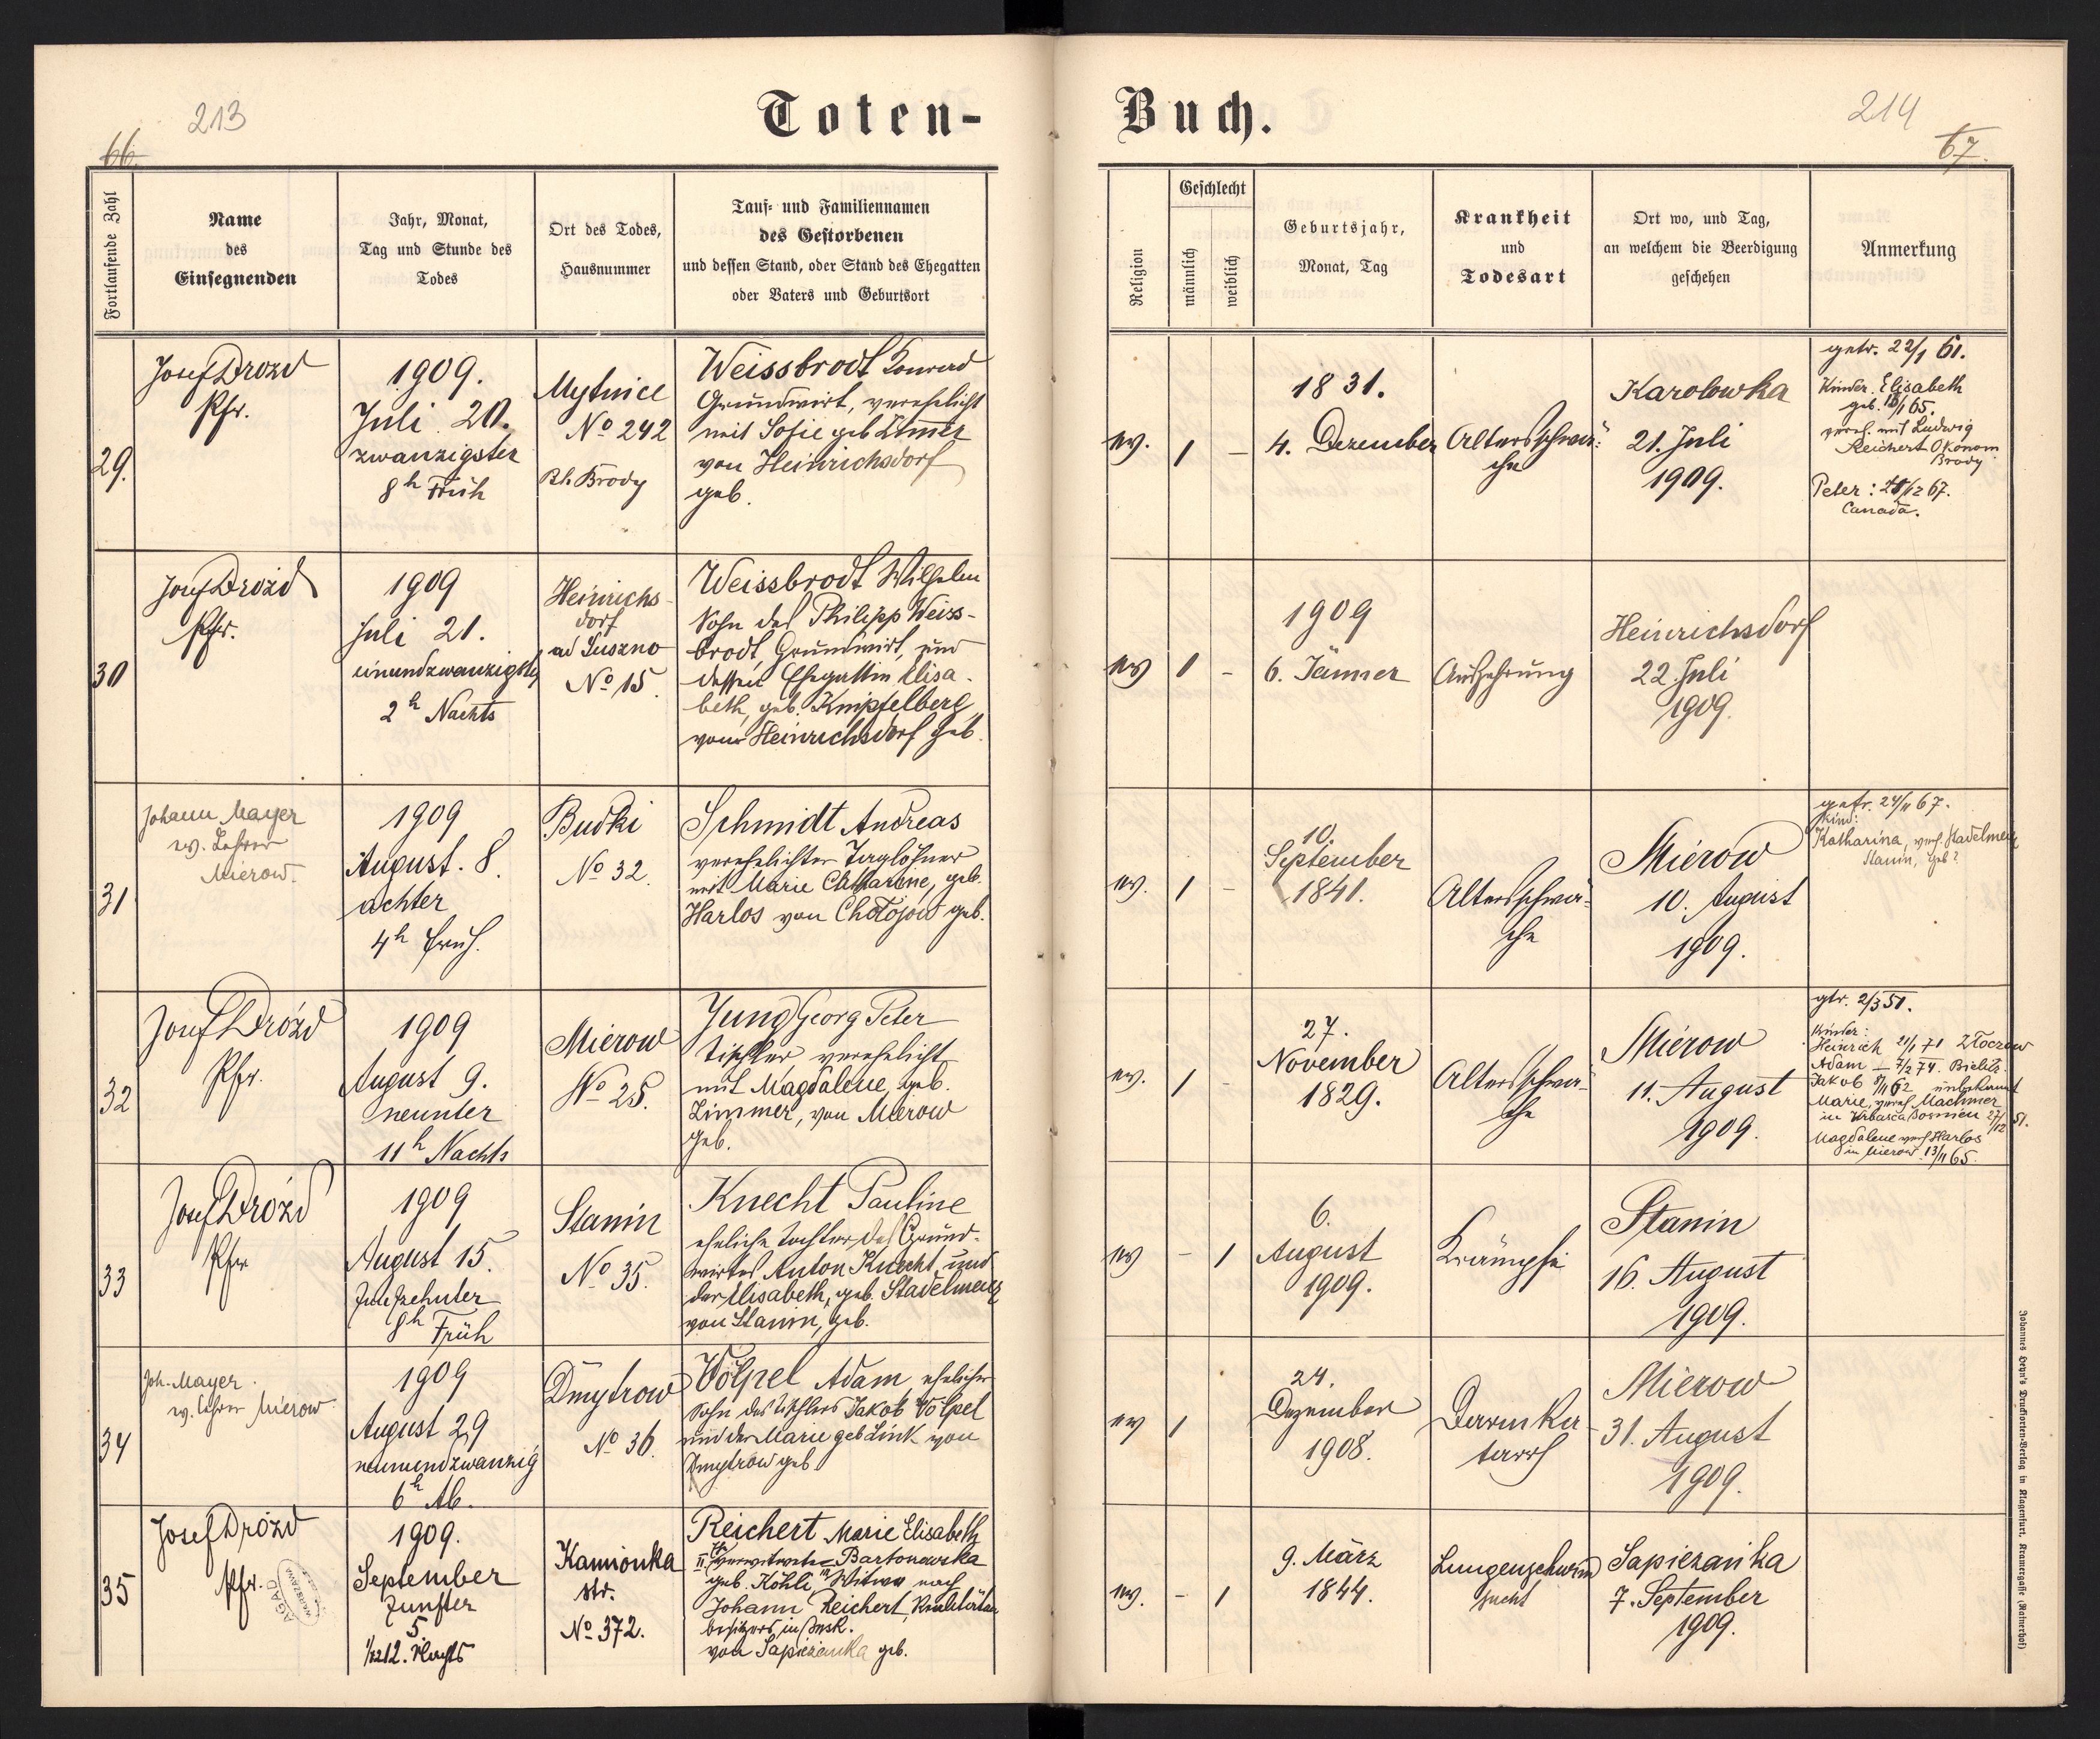 213
66.
Toten-
Fortlaufende Zahl
Name
des
Einsegnenden
Jahr, Monat,
Tag und Stunde des
Todes
Ort des Todes,
Hausnummer
Tauf- und Familiennamen
des Gestorbenen
und dessen Stand, oder Stand des Ehegatten
oder Vaters und Geburtsort
29.
Josef Drozd
Pfr.
1909.
Juli 20.
zwanzigster
8h Früh
Mytnice
No 242
Bh. Brody
Weissbrodt Konrad
Grundwirt, verehelicht
mit Sofie geb. Zimmer
von Heinrichsdorf
geb.
30
Josef Drozd
Pfr.
1909
Juli 21.
einundzwanzigster
2h Nachts
Heinrichs-
dorf
ad Suszno
No 15.
Weissbrodt Wilhelm
Sohn des Philipp Weiss-
brodt, Grundwirt, und
dessen Ehegattin Elisa-
beth, geb. Knipfelberg
von Heinrichsdorf geb.
31
Johann Mayer
ev. Lehrer
Mierow.
1909
August. 8.
achter
4h früh.
Budki
No 32.
Schmidt Andreas
verehelichter Taglöhner
mit Marie Catharine, geb.
Harlos von Chołojow geb.
32
Josef Drózd
Pfr.
1909
August 9.
neunter
11h Nachts
Mierow
No 25.
Jung Georg Peter
Tischler, verehelicht
mit Magdalene, geb.
Zimmer, von Mierow
geb.
33
Josef Drózd
Pfr.
1909
August 15.
funfzehnter
8h Früh
Stanin
No 35.
Knecht Pauline
eheliche Tochter des Grund-
wirtes Anton Knecht und
der Elisabeth, geb. Stadelmeier
von Stanin, geb.
34
Joh. Mayer
ev. Lehrer Mierow
1909
August 29
neunundzwanzig
6h Ab.
Dmytrow
No 36.
Völpel Adam ehelicher
Sohn des Tischlers Jakob Völpel
und der Marie geb Link von
Dmytrow geb.
35
Josef Drózd
Pfr.
AGAD
WARSZAWA
1909.
September
funfter
5.
1/2 12. Nachts
Kamionka
str.
No 372.
Reichert Marie Elisabeth
II verwitwete Bartonowska
geb. Köhli, Witwe nach
Johann Reichert, Realitäten
besitzers in
von Sapiezanka geb.
214
67.
Buch.
Religion
Geschlecht
männlich
weiblich
Geburtsjahr,
Monat, Tag
Krankheit
und
Todesart
Ort wo, und Tag,
an welchem die Beerdigung
geschehen
Anmerkung
ev.
1
-
1831.
4. Dezember
Altersschwä-
che
Karolowka
21. Juli
1909.
getr. 22/1 61.
Kinder. Elisabeth
geb. 18/1 65.
verh. mit Ludwig
Reichert Okonom
Brody
Peter: 28/12 67.
Canada.
ev
1
-
1909
6. Jänner
Auszehrung
Heinrichsdorf
22. Juli
1909.
ev.
1
-
10.
September
1841.
Altersschwä-
che
Mierow
10. August
1909.
getr. 24/11 67.
Kind:
Katharina, verh. Stadelmeier
Stanin, geb?
ev.
1
-
27.
November
1829.
Altersschwä-
che
Mierow
11. August
1909.
gtr. 2/3 51.
Kinder:
Heinrich 21/1 71 Złoczow
Adam - 7/2 74. Bielitz.
Jakob 8/11 62 unbekannt
Marie, verh. Machmer
in Vrbasca Bosnien 27/12 51.
Magdalene verh Harlos
in Mierow. 13/11 65.
ev
-
1
6.
August
1909.
Krämpfe
Stanin
16. August
1909.
ev
1
24.
Dezember
1908.
Darmka-
tarrh
Mierow
31. August
1909.
ev.
-
1
9. März
1844.
Lungenschwind
sucht
Sapiezanka
7. September
1909.
Johannes Heyn's Drucksorten-Verlag in Klagenfurt, Kramergasse (Rainerhof)